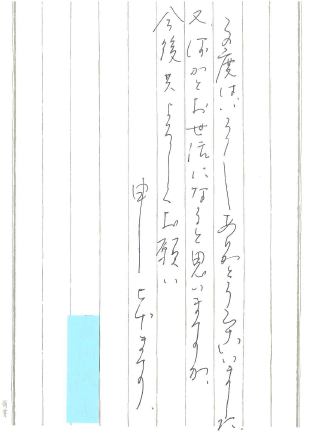 この度は、ありがとうございました。
又、何かとお世話になると思いますが、
今後共よろしくお願い
申し上げます。